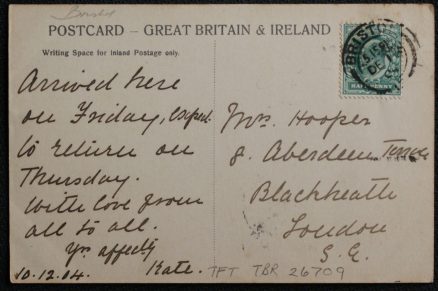 Bristol
POSTCARD – GREAT BRITAIN & IRELAND
Writing Space for Inland Postage only.
BRISTOL
HALFPENNY
Arrived here
on Friday, expect
to return on
Thursday.
With love from
all to all.
Yr. affectly
Kate.
10.12.04.
Mrs. Hooper
8. Aberdeen Terrace
Blackheath
London
S.E.
TFT TBR 26709